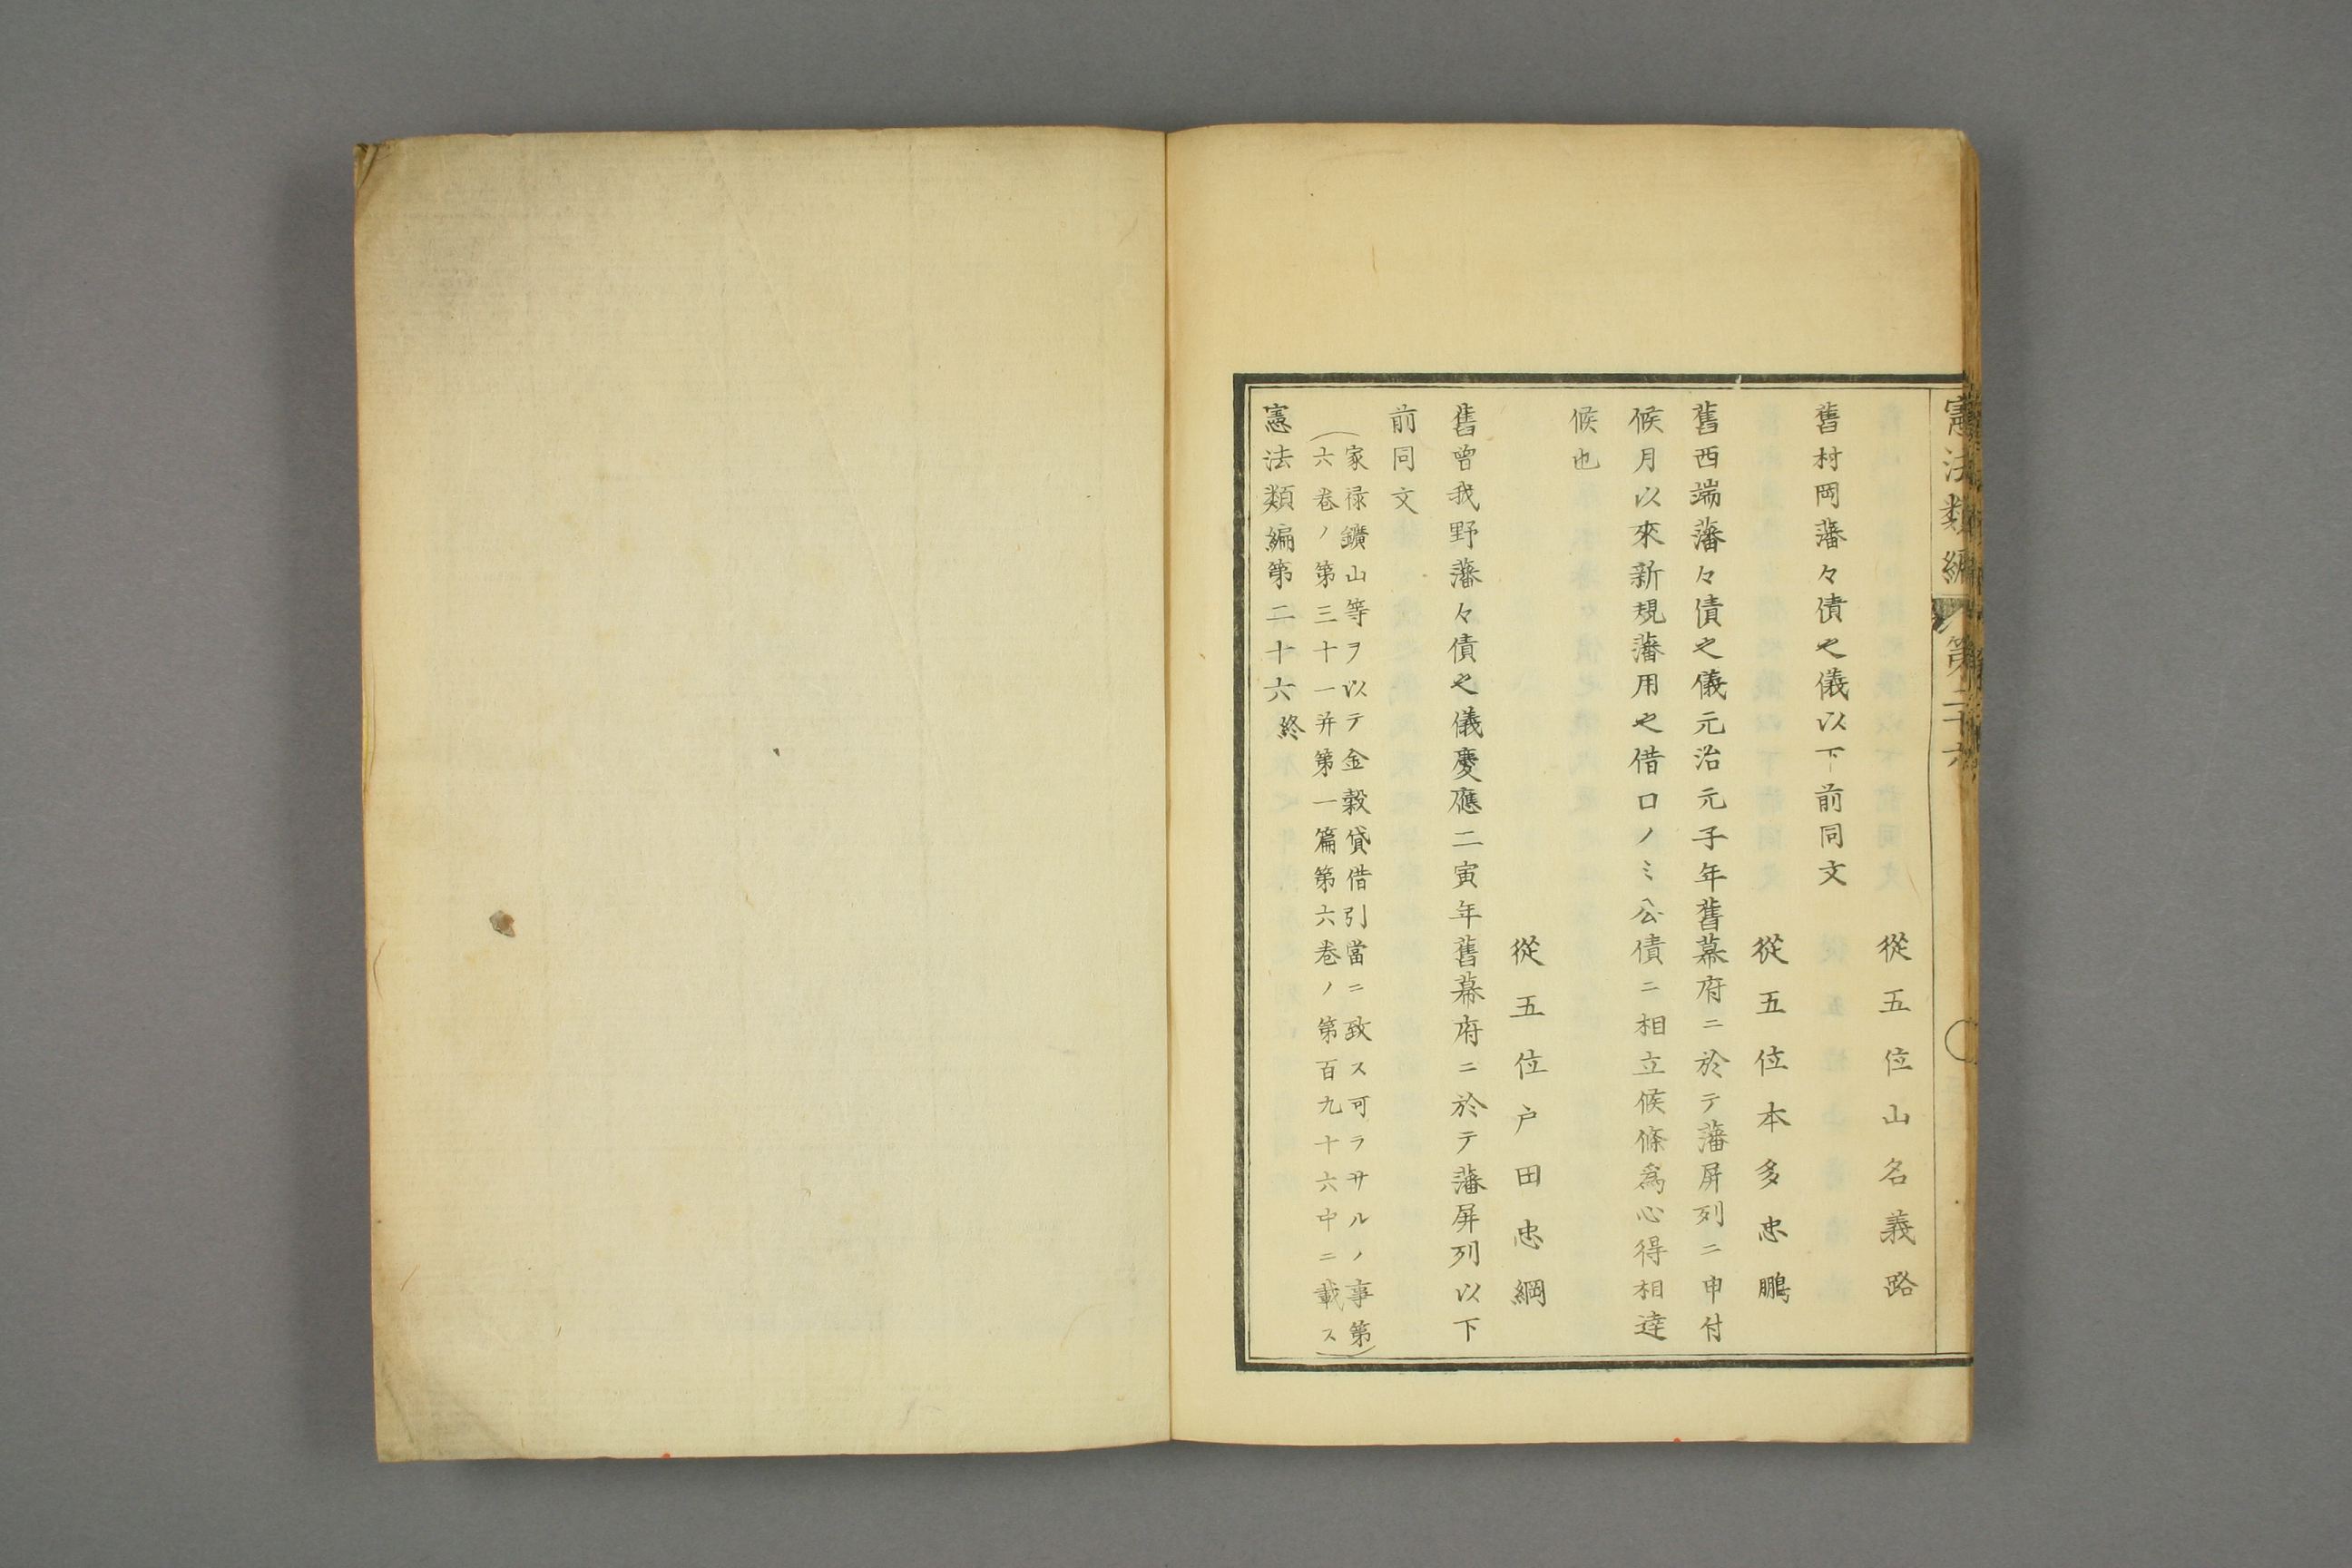 憲法類編 第二十六
從五位山名義路
舊村岡藩々債之儀以下前同文
從五位本多忠鵬
舊西端藩々債之儀元治元子年舊幕府ニ於テ藩屏列ニ申付
候月以來新規藩用之借口ノミ公債ニ相立候條爲心得相達
候也
從五位戸田忠綱
舊曾我野藩々債之儀慶應二寅年舊幕府ニ於テ藩屏列以下
前同文
(家禄鑛山等ヲ以テ金穀貸借引當ニ致ス可ラサルノ事第
六巻ノ第三十一并第一篇第六巻ノ第百九十六中ニ載ス)
憲法類編第二十六終